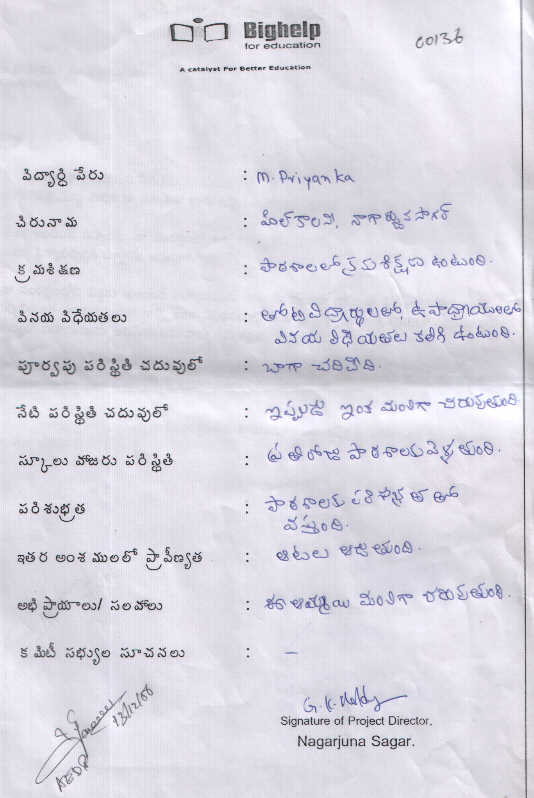 Bighelp
for education
A catalyst For Better Education
00136
విద్యార్థి పేరు : M. Priyanka
చిరునామ : హిల్ కాలని, నాగార్జున సాగర్
క్రమశిక్షణ : పాఠశాలలో క్రమశిక్షణగా ఉంటుంది.
వినయ విధేయతలు : తోటి విద్యార్థులతో, ఉపాధ్యాయులతో
వినయ విధేయతలు కలిగి ఉంటుంది.
పూర్వపు పరిస్థితి చదువులో : బాగా చదివేది.
నేటి పరిస్థితి చదువులో : ఇప్పుడు ఇంకా మంచిగా చదువుతుంది
స్కూలు హాజరు పరిస్థితి : ప్రతిరోజు పాఠశాలకు వెళ్ళుతుంది.
పరిశుభ్రత : పాఠశాలకు పరిశుభ్రతతో
వస్తుంది.
ఇతర అంశములలో ప్రావీణ్యత : ఆటలు ఆడుతుంది.
అభిప్రాయాలు/ సలహాలు : ఈ అమ్మాయి మంచిగా చదువుతుంది.
కమిటీ సభ్యుల సూచనలు : –
G. K. Reddy
Signature of Project Director.
Nagarjuna Sagar.
13/12/06